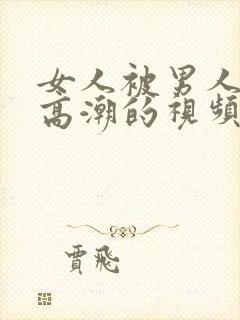 女人被男人
高潮的視頻
賈飛